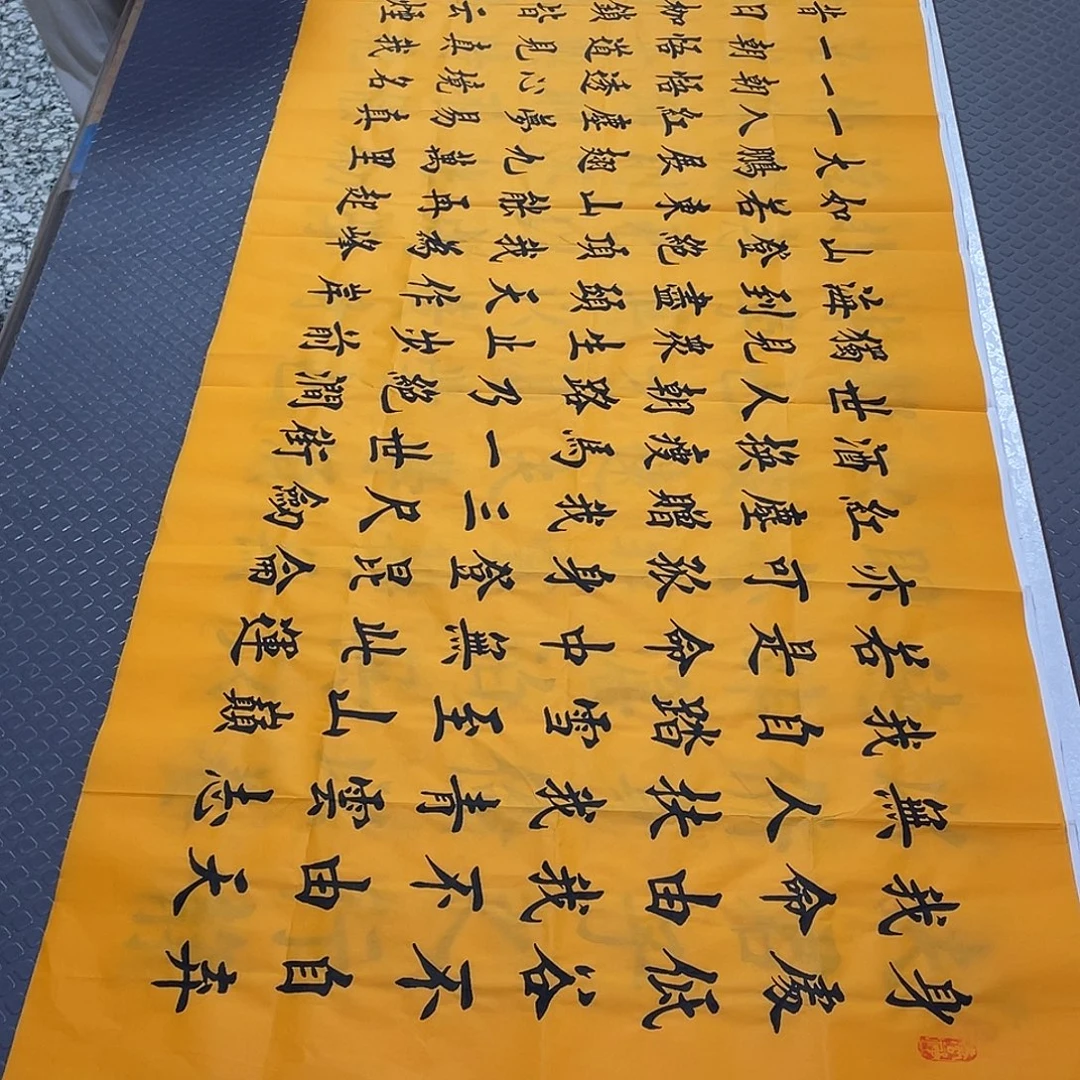 身處低谷不自弃
我命由我不由天
無人扶我青雲志
我自踏雪至山巔
若是命中無此運
亦可孤身登昆侖
紅塵贈我三尺劍
酒換瘦馬一世街
世人朝路乃絕澗
獨見眾生止步前
海到盡頭天作岸
山登絕頂我為峰
如若東山能再起
大鵬展翅九萬里
一入紅塵夢易真
一朝悟透心境名
一朝悟道見真我
昔日枷鎖皆云煙